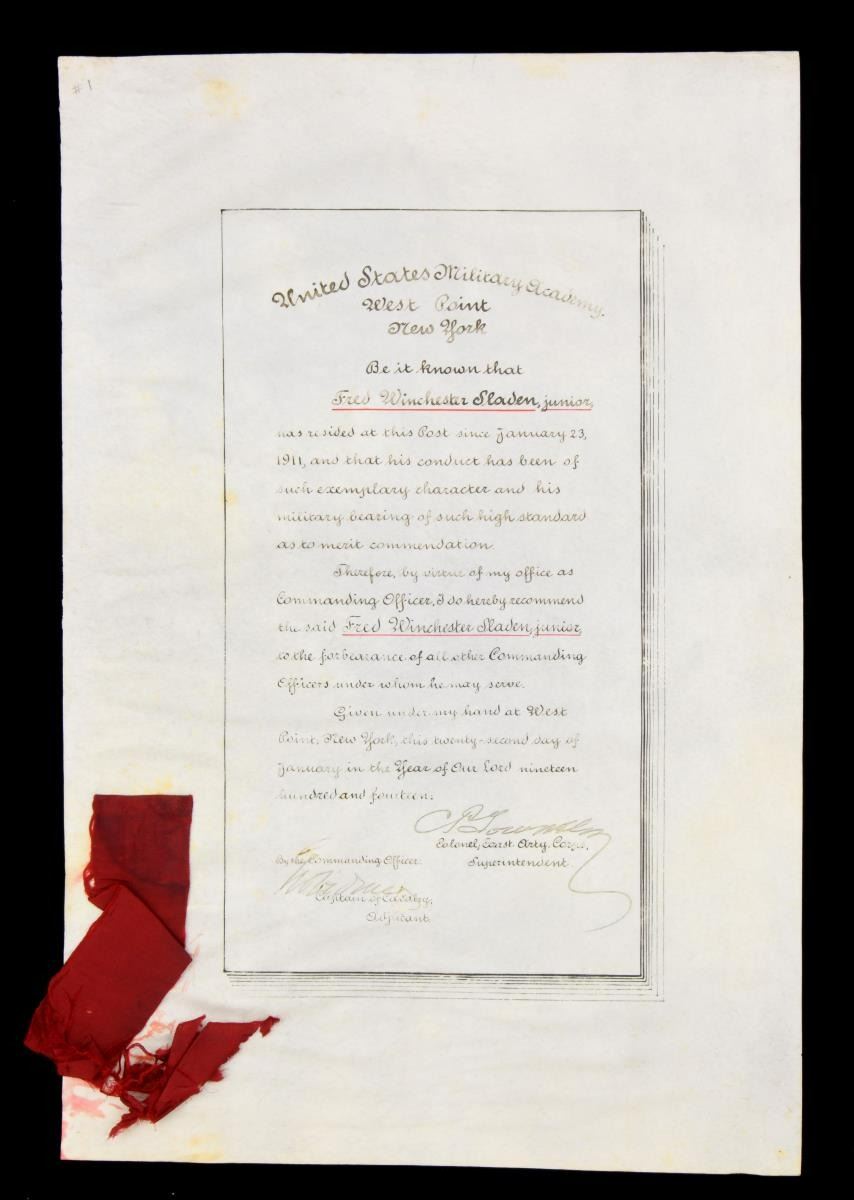 # 1
United States Military Academy.
West Point
New York
Be it known that
Fred Winchester Sladen, junior,
has resided at this Post since January 23,
1911, and that his conduct has been of
such exemplary character and his
military bearing of such high standard
as to merit commendation.
Therefore, by virtue of my office as
Commanding Officer, I do hereby recommend
the said Fred Winchester Sladen, junior,
to the forbearance of all other Commanding
Officers under whom he may serve.
Given under my hand at West
Point, New York, this twenty-second day of
January in the Year of Our Lord nineteen
hundred and fourteen.
Colonel, Coast Arty. Corps,
Superintendent.
By the Commanding Officer:
Captain of Cavalry,
Adjutant.